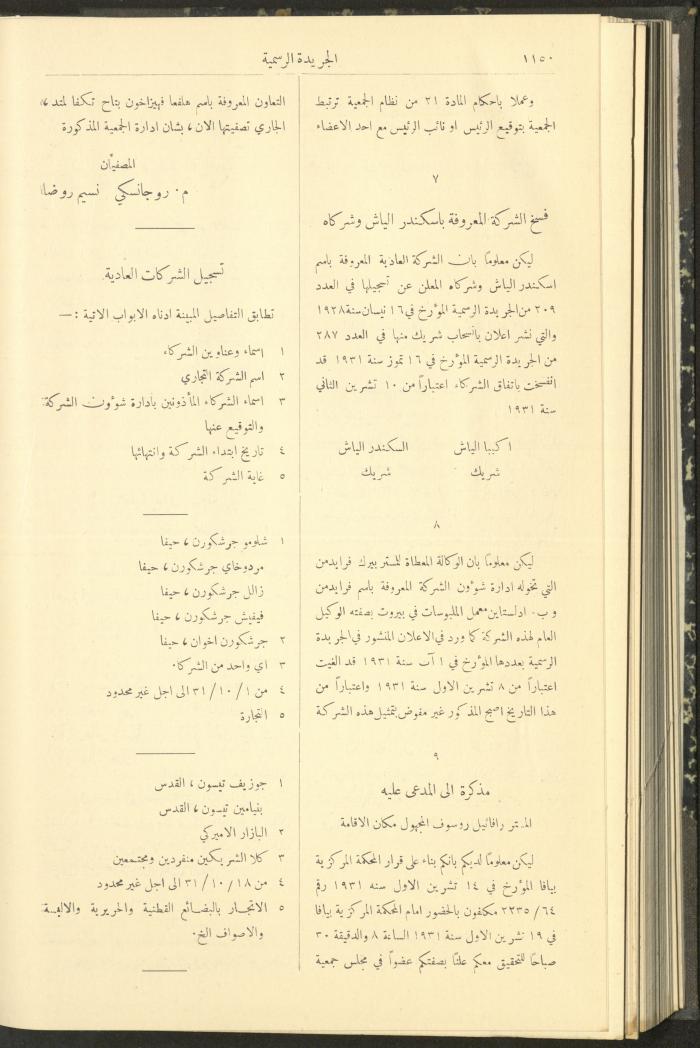 ١١٥٠
الجريدة الرسمية
وعملا باحكام المادة ٢١ من نظام الجمعية ترتبط
الجمعية بتوقيع الرئيس او نائب الرئيس مع احد الاعضاء
٧
فسخ الشركة المعروفة باسكندر الياش وشركاه
ليكن معلومًا بان الشركة العادية المعروفة باسم
اسكندر الياش وشركاه المعلن عن تسجيلها في العدد
٢٠٩ من الجريدة الرسمية المؤرخ في ١٦ نيسان سنة ١٩٢٨
والتي نشر اعلان بانسحاب شريك منها في العدد ٢٨٧
من الجريدة الرسمية المؤرخ في ١٦ تموز سنة ١٩٣١ قد
انفسخت باتفاق الشركاء اعتبارًا من ١٠ تشرين الثاني
سنة ١٩٣١
اكببا الياش السكندر الياش
شريك شريك
٨
ليكن معلومًا بان الوكالة المعطاة للمستر بيرك فرايدمن
التي تخوله ادارة شوءون الشركة المعروفة باسم فرايدمن
و ب. ادلستاين معمل الملبوسات في بيروت بصفته الوكيل
العام لهذه الشركة كما ورد في الاعلان المنشور في الجريدة
الرسمية بعددها المؤرخ في ١ آب سنة ١٩٣١ قد الغيت
اعتبارًا من ٨ تشرين الاول سنة ١٩٣١ واعتبارًا من
هذا التاريخ اصبح المذكور غير مفوض بتمثيل هذه الشركة
٩
مذكرة الى المدعى عليه
المستر رافائيل روسوف المجهول مكان الاقامة
ليكن معلومًا لديكم بانكم بناء على قرار المحكمة المركزية
بيافا المؤرخ في ١٤ تشرين الاول سنه ١٩٣١ رقم
٢٢٣٥/٦٤ مكلفون بالحضور امام المحكمة المركزية بيافا
في ١٩ تشرين الاول سنة ١٩٣١ الساعة ٨ والدقيقة ٣٠
صباحًا للتحقيق معكم علنًا بصفتكم عضوًا في مجلس جمعية
التعاون المعروفة باسم هلفعا فهيزاخون بتاح تكفا لمتد،
الجاري تصفيتها الان، بشان ادارة الجمعية المذكورة
المصفيان
م. روجانسكي نسيم روضا
تسجيل الشركات العادية
تطابق التفاصيل المبينة ادناه الابواب الاتية :—
١ اسماء وعناوين الشركاء
٢ اسم الشركة التجاري
٣ اسماء الشركاء المأذونين بادارة شوءون الشركة
والتوقيع عنها
٤ تاريخ ابتداء الشركة وانتهائها
٥ غاية الشركة
١ شلومو جرشكورن، حيفا
مردوخاي جرشكورن، حيفا
زالل جرشكورن، حيفا
فيفيش جرشكورن، حيفا
٢ جرشكورن اخوان، حيفا
٣ اي واحد من الشركا.
٤ من ١/١٠/٣١ الى اجل غير محدود
٥ التجارة
١ جوزيف تيسون، القدس
بنيامين تيسون، القدس
٢ البازار الاميركي
٣ كلا الشريكين منفردين ومجتمعين
٤ من ١٨/١٠/٣١ الى اجل غير محدود
٥ الاتجار بالبضائع القطنية والحريرية والالبسة
والاصواف الخ.